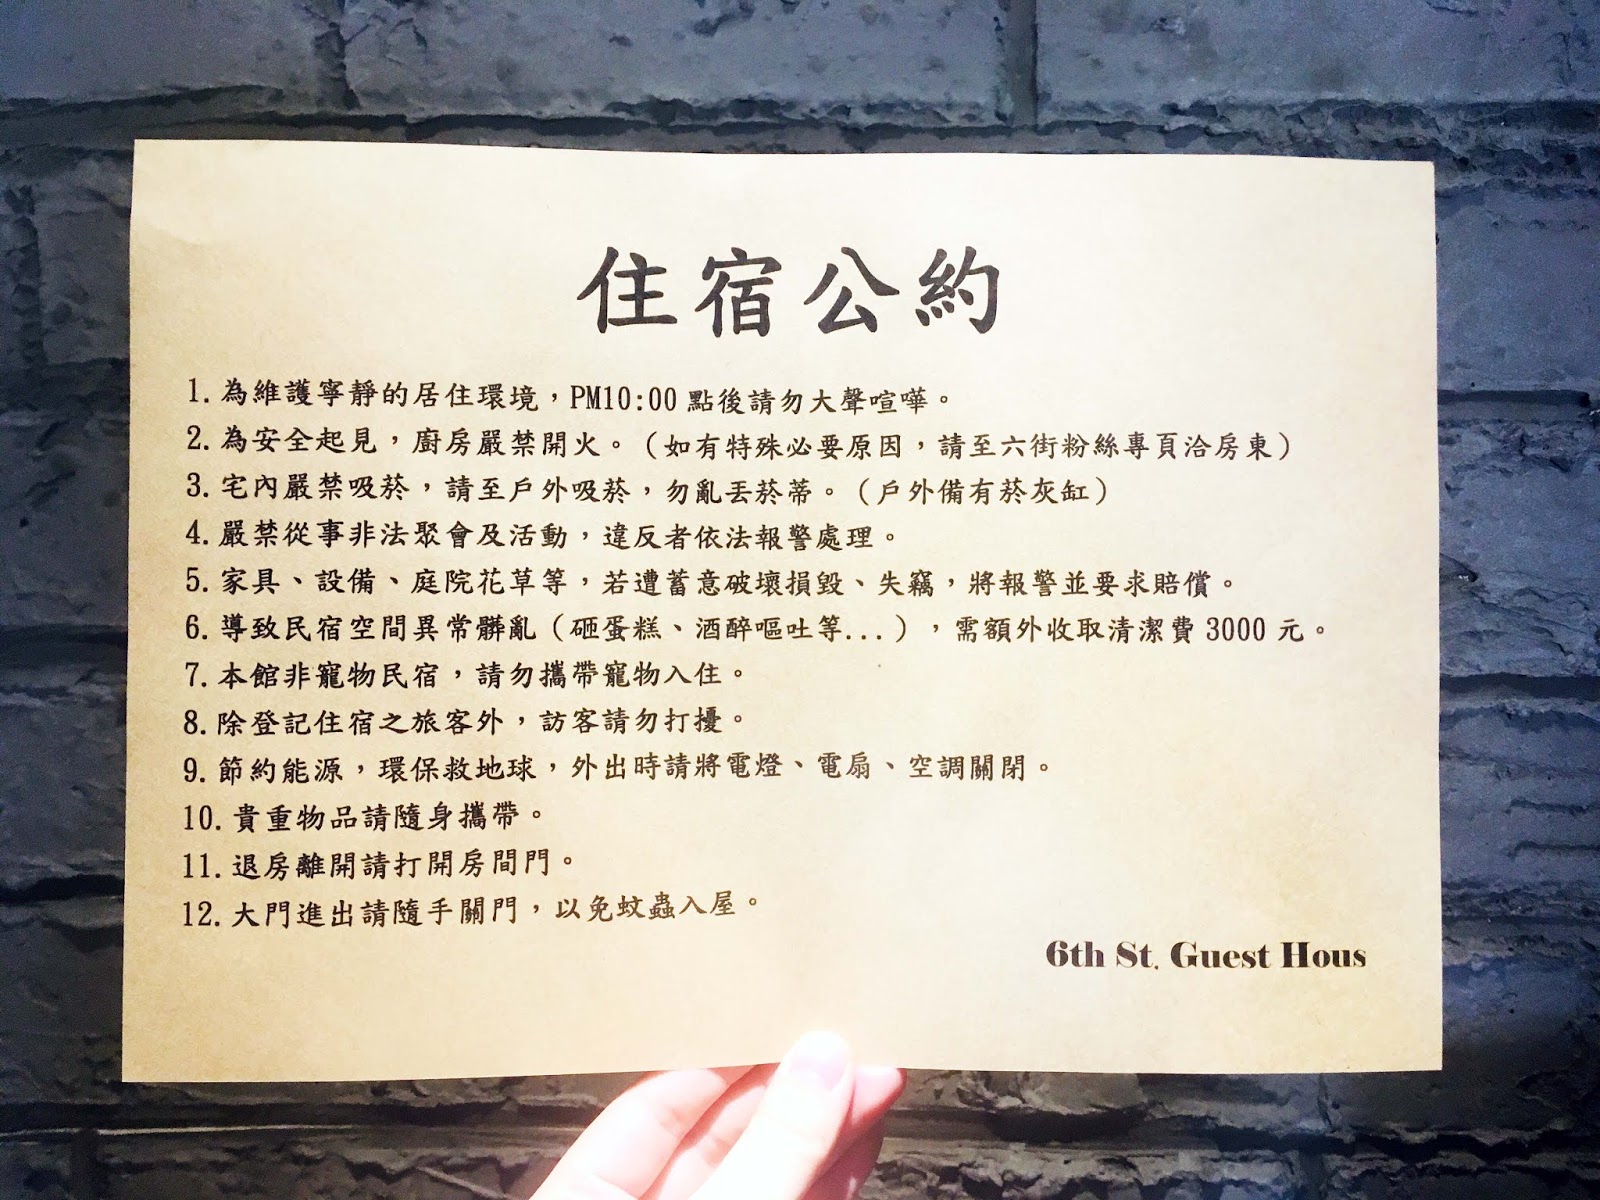 住宿公約
1.為維護寧靜的居住環境，PM10:00點後請勿大聲喧嘩。
2.為安全起見，廚房嚴禁開火。（如有特殊必要原因，請至六街粉絲專頁洽房東）
3.宅內嚴禁吸菸，請至戶外吸菸，勿亂丟菸蒂。（戶外備有菸灰缸）
4.嚴禁從事非法聚會及活動，違反者依法報警處理。
5.家具、設備、庭院花草等，若遭蓄意破壞損毀、失竊，將報警並要求賠償。
6.導致民宿空間異常髒亂（砸蛋糕、酒醉嘔吐等...），需額外收取清潔費3000元。
7.本館非寵物民宿，請勿攜帶寵物入住。
8.除登記住宿之旅客外，訪客請勿打擾。
9.節約能源，環保救地球，外出時請將電燈、電扇、空調關閉。
10.貴重物品請隨身攜帶。
11.退房離開請打開房間門。
12.大門進出請隨手關門，以免蚊蟲入屋。
6th St. Guest Hous